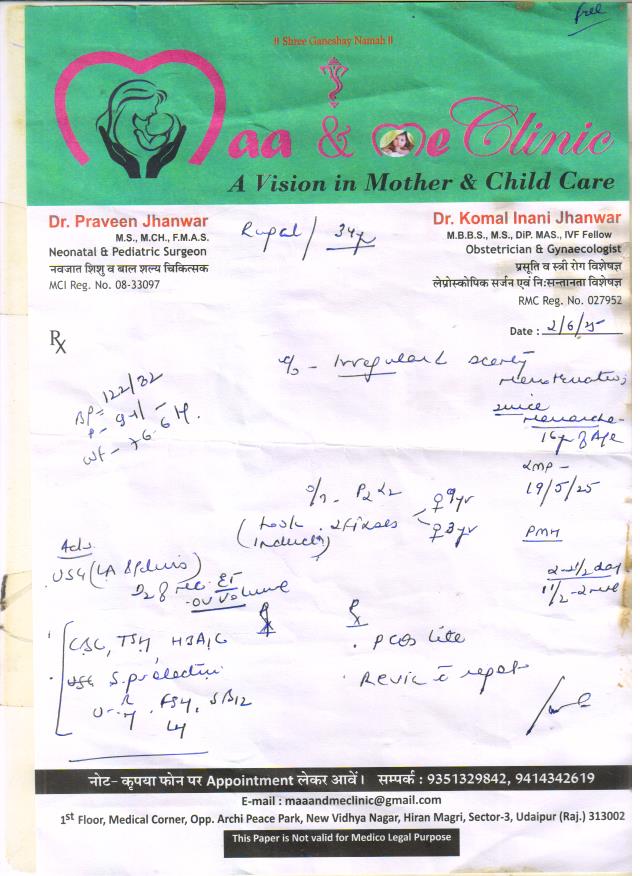 free
॥ Shree Ganeshay Namah ॥
Maa & Me Clinic
A Vision in Mother & Child Care
Dr. Praveen Jhanwar
M.S., M.CH., F.M.A.S.
Neonatal & Pediatric Surgeon
नवजात शिशु व बाल शल्य चिकित्सक
MCI Reg. No. 08-33097
Rupal / 34yr
Dr. Komal Inani Jhanwar
M.B.B.S., M.S., DiP. MAS., IVF Fellow
Obstetrician & Gynaecologist
प्रसूति व स्त्री रोग विशेषज्ञ
लेप्रोस्कोपिक सर्जन एवं निःसन्तानता विशेषज्ञ
RMC Reg. No. 027952
Date : 2/6/25
Rx
c/o - Irregular & scanty
menstruation
since
menarche -
16yr of Age
BP = 122/82
P - 91/
WT - 76.6
LMP -
19/5/25
O/H - P2L2
♀ 9yr
♀ 3yr
PMH
Adv.
USG (LA & pelvis)
ET
ov volume
CBC, TSH, HBA1C
S. prolactin
FSH, SB12
LH
Rx
. PCOS lite
. Review c report
नोट- कृपया फोन पर Appointment लेकर आवें। सम्पर्क : 9351329842, 9414342619
E-mail : maaandmeclinic@gmail.com
1st Floor, Medical Corner, Opp. Archi Peace Park, New Vidhya Nagar, Hiran Magri, Sector-3, Udaipur (Raj.) 313002
This Paper is Not valid for Medico Legal Purpose